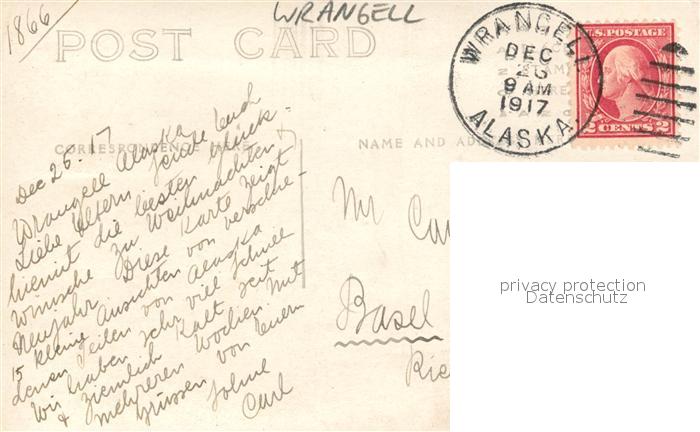 1866
WRANGELL
POST CARD
WRANGELL
DEC
26
9 AM
1917
ALASKA.
U.S. POSTAGE
2 CENTS 2
CORRESPONDENCE HERE
NAME AND ADD
Dec 26-17
Wrangell Alaska
Liebe Eltern sende Euch
hiemit die besten Glück-
wünsche zu Weihnachten &
Neujahr. Diese Karte zeigt
15 kleine Ansichten von verschie-
denen Teilen von Alaska
Wir haben sehr viel Schnee
& ziemlich Kalt seit
mehreren Wochen. Mit
Grüssen von Euerm
Sohne
Carl
Mr Ca
Basel
Rie
privacy protection
Datenschutz